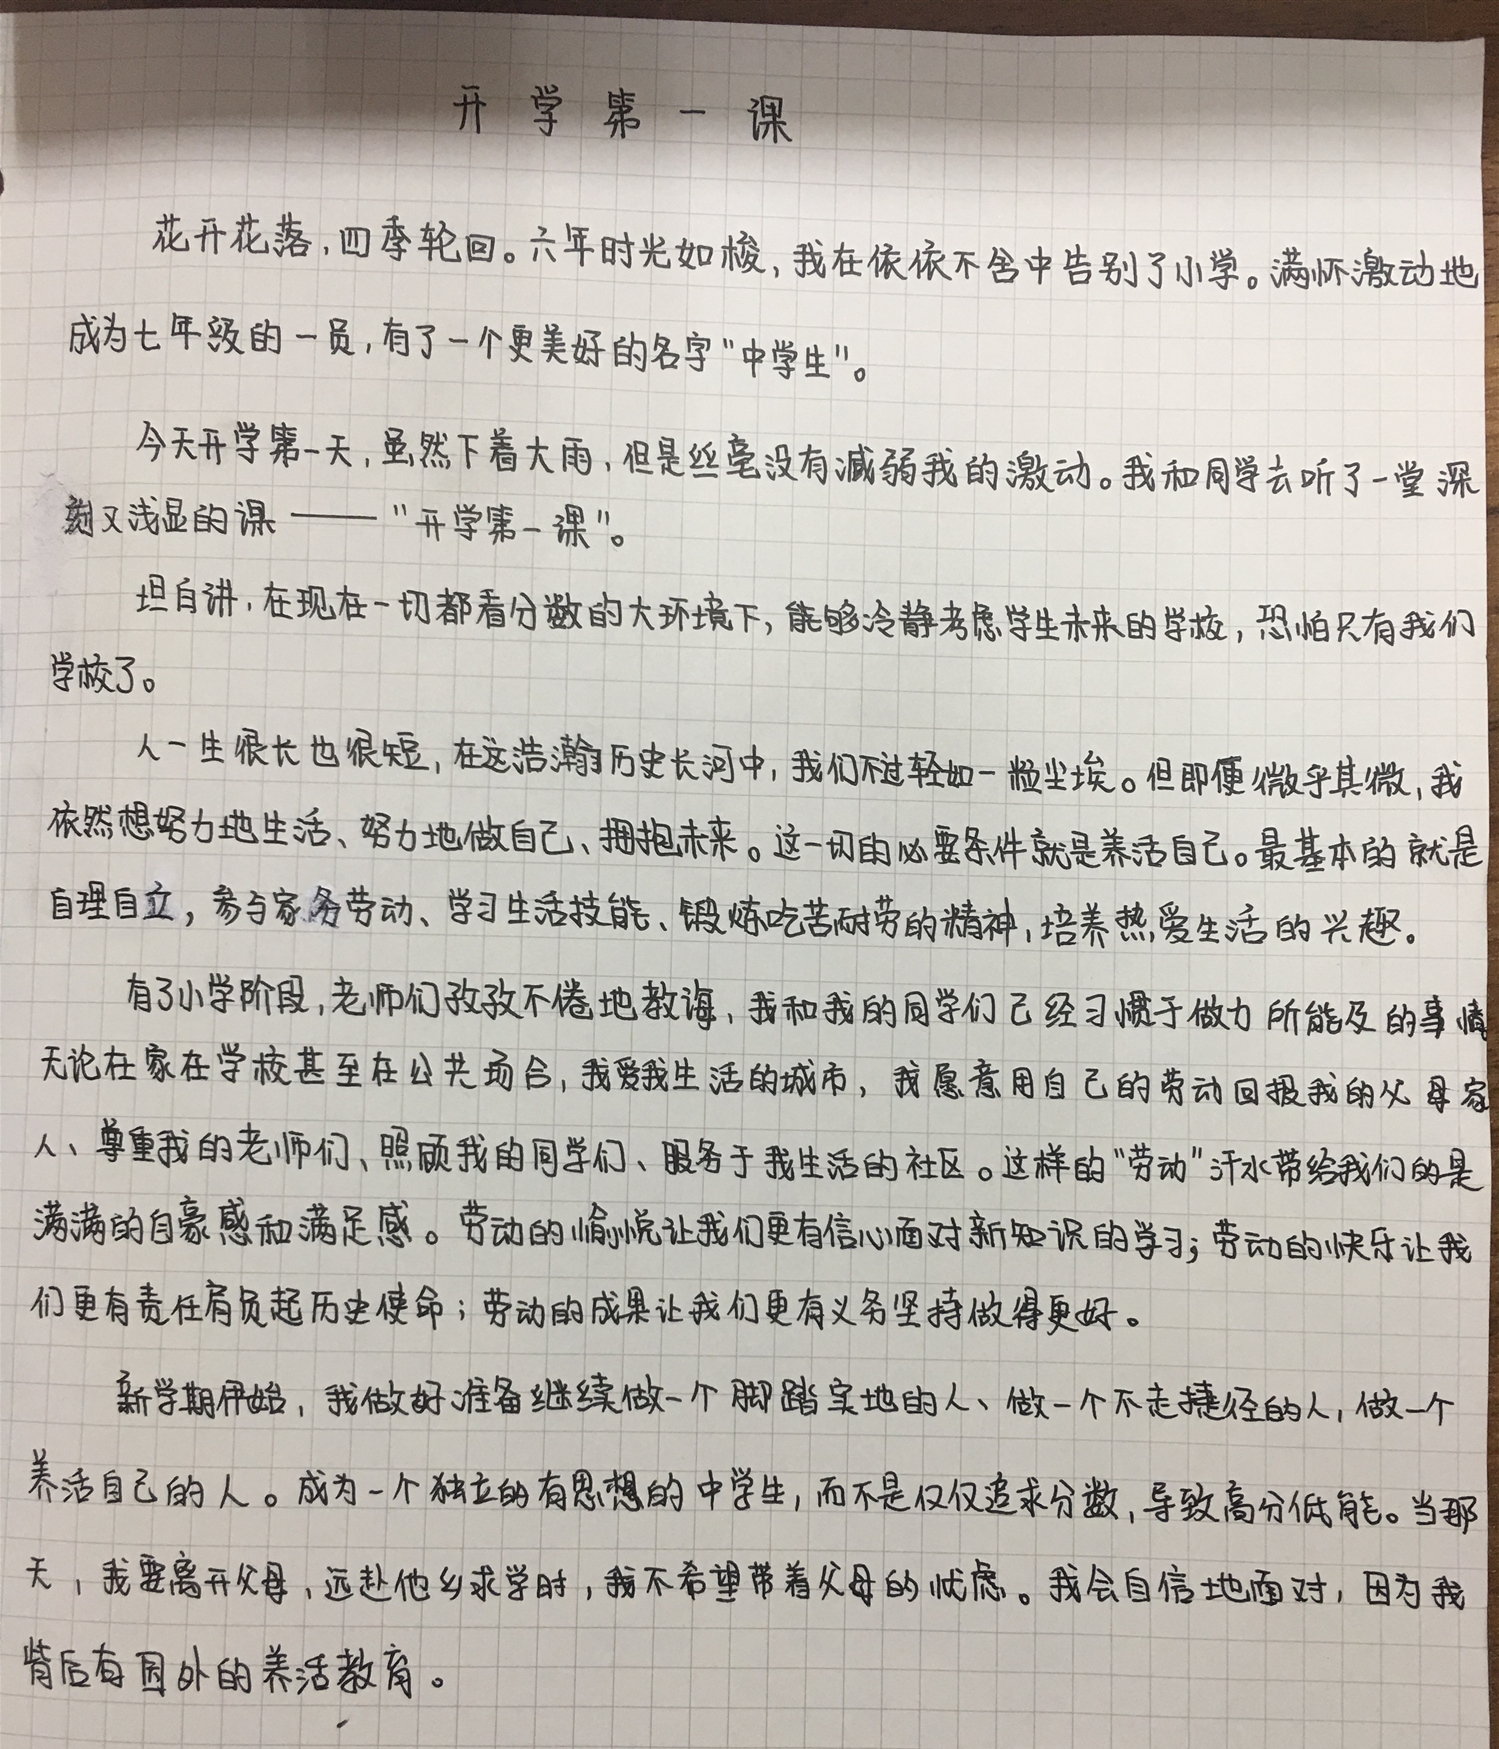 开学第一课
花开花落,四季轮回。六年时光如梭,我在依依不舍中告别了小学。满怀激动地
成为七年级的一员,有了一个更美好的名字"中学生"。
今天开学第一天,虽然下着大雨,但是丝毫没有减弱我的激动。我和同学去听了一堂深
刻又浅显的课——"开学第一课"。
坦白讲,在现在一切都看分数的大环境下,能够冷静考虑学生未来的学校,恐怕只有我们
学校了。
人一生很长也很短,在这浩瀚历史长河中,我们不过轻如一粒尘埃。但即便微乎其微,我
依然想努力地生活、努力地做自己、拥抱未来。这一切的必要条件就是养活自己。最基本的就是
自理自立,参与家务劳动、学习生活技能、锻炼吃苦耐劳的精神,培养热爱生活的兴趣。
有了小学阶段,老师们孜孜不倦地教诲,我和我的同学们已经习惯于做力所能及的事情
无论在家在学校甚至在公共场合,我爱我生活的城市,我愿意用自己的劳动回报我的父母家
人、尊重我的老师们、照顾我的同学们、服务于我生活的社区。这样的"劳动"汗水带给我们的是
满满的自豪感和满足感。劳动的愉悦让我们更有信心面对新知识的学习;劳动的快乐让我
们更有责任肩负起历史使命;劳动的成果让我们更有义务坚持做得更好。
新学期伊始,我做好准备继续做一个脚踏实地的人、做一个不走捷径的人,做一个
养活自己的人。成为一个独立的有思想的中学生,而不是仅仅追求分数,导致高分低能。当那
天,我要离开父母,远赴他乡求学时,我不希望带着父母的忧虑。我会自信地面对,因为我
背后有园外的养活教育。